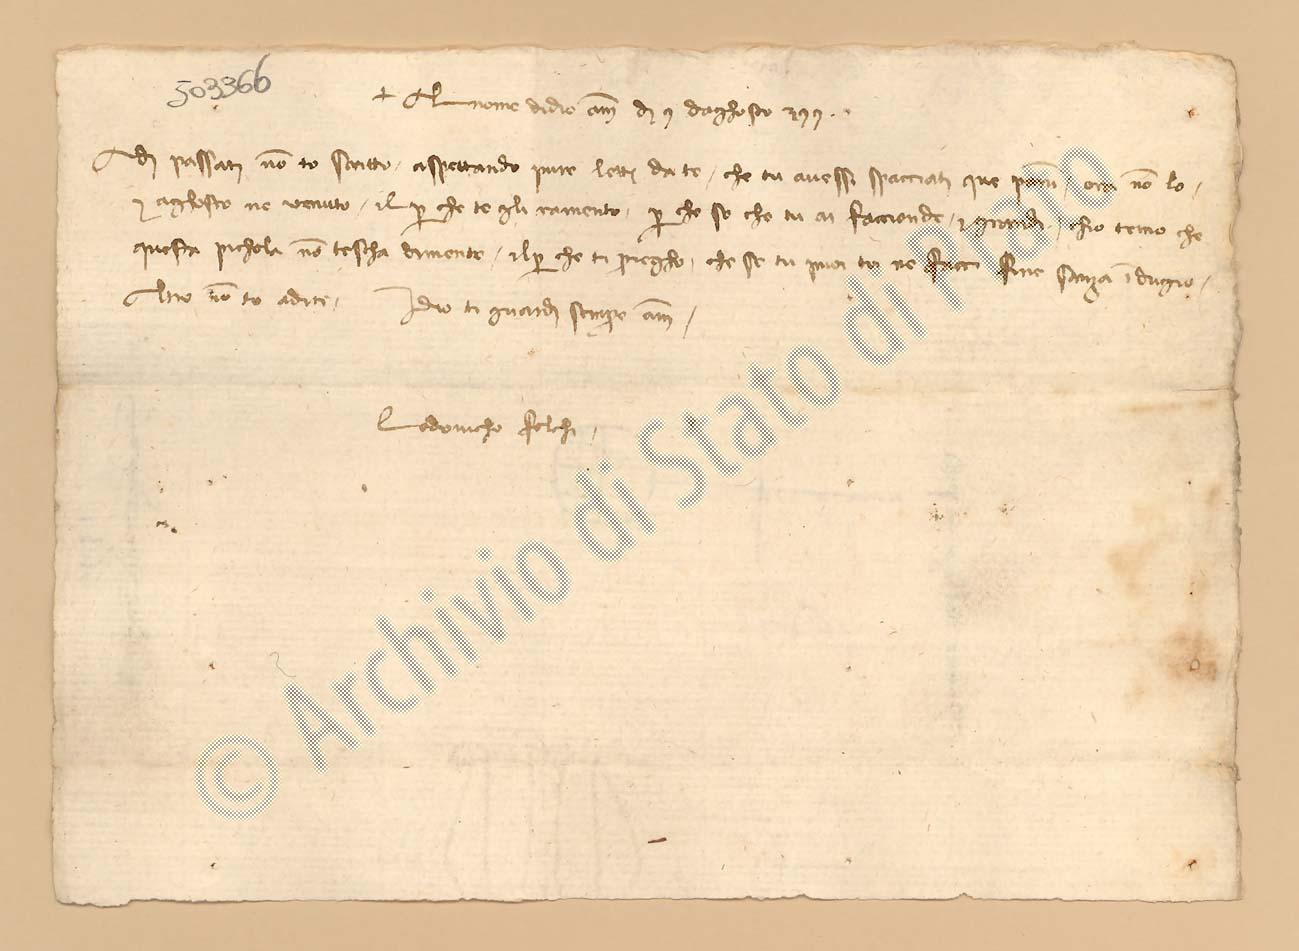 503366
+ Al nome didio am̄ dj 9 daghosto 399.
Adj passatj nō to scritto / aspettando pure letť da te / che tu avessi spacciatj que pannj / ora nō lo /
z aghosto ne venuto / il p̱ che te gli ramento / p̱ che so che tu ai faccende / z grandj / chio temo che
questa pichola nō tescha dimente / il p̱ che ti priegho / che se tu puoi tu ne facci fine sanza īdugio /
Altro nō to adire / Idio ti guardj sempre am̄ /
Lodovicho folchi /
© Archivio di Stato di Prato